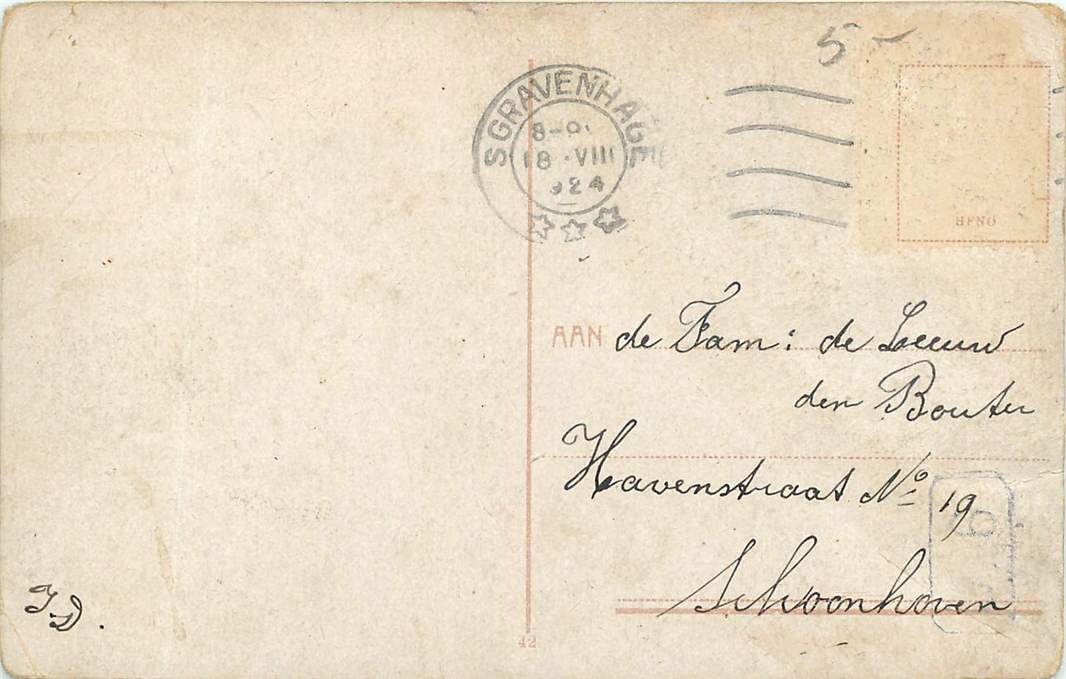 5-
SGRAVENHAGE
18 VIII
924
HFNO
AAN de Fam: de Leeuw
den Bouter
Havenstraat No 19
Schoonhoven
J.D.
42